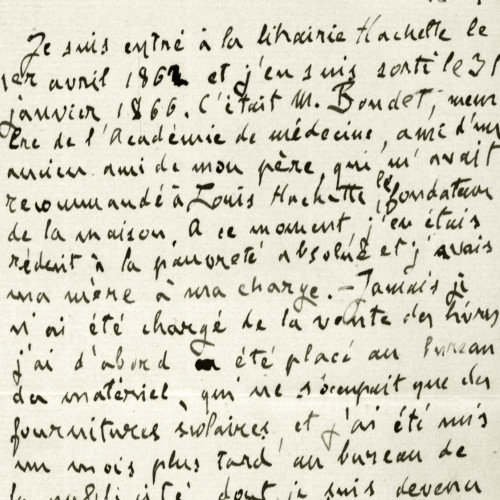 Je suis entré à la librairie Hachette le
1er avril 1862 et j'en suis sorti le 31
janvier 1866. C'était M. Boudet, mem
bre de l'Académie de médecine, ami d'un
ancien ami de mon père, qui m'avait
recommandé à Louis Hachette, le fondateur
de la maison. A ce moment, j'en étais
réduit à la pauvreté absolue et j'avais
ma mère à ma charge. – Jamais je
n'ai été chargé de la vente des livres
j'ai d'abord été placé au bureau
du matériel, qui ne s'occupait que des
fournitures scolaires, et j'ai été mis
un mois plus tard au bureau de
la publicité dont je suis devenu